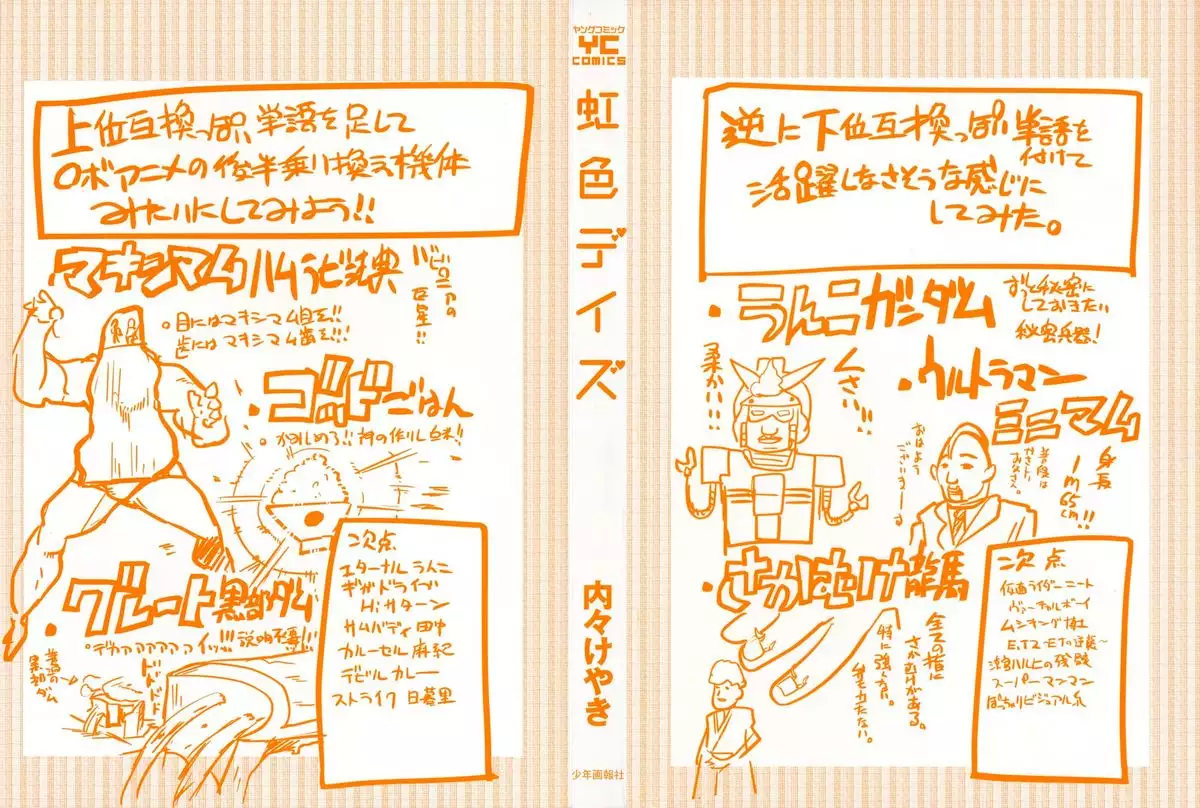 上位互換っぽい単語を足して
ロボアニメの後半乗り換え機体
みたいにしてみよう!!
マキシマムハムラビ法典
バビロニアの
巨星!!
。目にはマキシマム目を!!
歯にはマキシマム歯を!!!
・ゴッドごはん
。かみしめろ!!神の作りし白米!!
・グレート黒部ダム
。デカァァァァァイッ!!!説明不要!!
ドドドドド
普通の
黒部ダム
次点
エターナルうんこ
ギガドライブ
Hiサターン
サムバディ田中
カルーセル麻紀
デビルカレー
ストライク日暮里
ヤングコミック
YC
COMICS
虹色デイズ
内々けやき
少年画報社
逆に下位互換っぽい単語を
付けて
活躍しなさそうな感じに
してみた。
・うんこガンダム
ずっと秘密に
しておきたい
秘密兵器!
くさい!!
柔かい!!
・ウルトラマン
ミニマム
身長
1m65cm!!
普段は
やさしい
おなさん。
おはよう
ございまーす
・さかむけ龍馬
全ての指に
さかむけがある。
特に強くない。
次点
仮面ライダーニート
ヴァーチャルボーイ
ムシキング博士
E.T.2-E.Tの逆襲〜
涼宮ハルヒの残骸
スーパーマンマン
ぽっちゃりビジュアル系